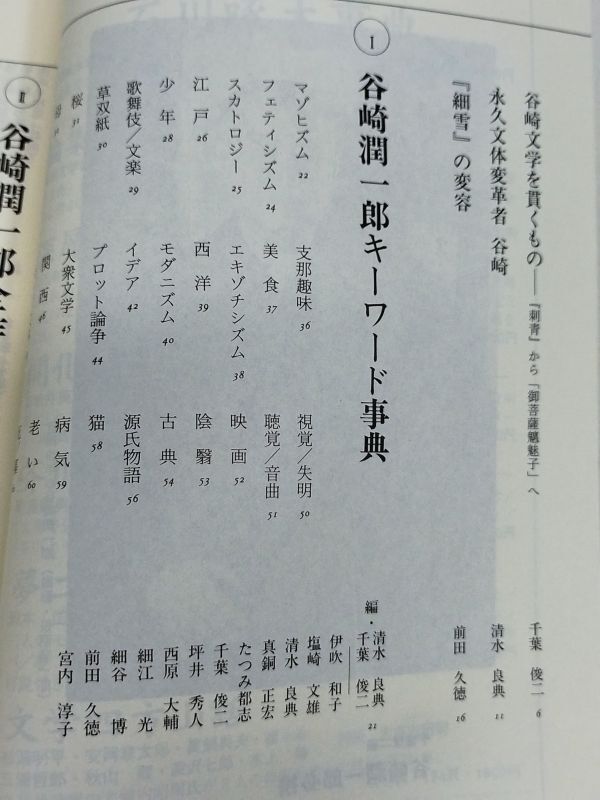 谷崎文学を貫くもの――『刺青』から「御菩薩魑魅子」へ 千葉 俊二 6
永久文体変革者 谷崎 清水 良典 11
『細雪』の変容 前田 久徳 16
I 谷崎潤一郎キーワード事典 編・清水 良典 千葉 俊二 21
マゾヒズム 22
フェティシズム 24
スカトロジー 25
江戸 26
少年 28
歌舞伎／文楽 29
草双紙 30
桜 31
支那趣味 36
美食 37
エキゾチシズム 38
西洋 39
モダニズム 40
イデア 42
プロット論争 44
大衆文学 45
関西 46
視覚／失明 50
聴覚／音曲 51
映画 52
陰翳 53
古典 54
源氏物語 56
猫 58
病気 59
老い 60
伊吹 和子
塩崎 文雄
清水 良典
真銅 正宏
たつみ都志
千葉 俊二
坪井 秀人
西原 大輔
細江 光
細谷 博
前田 久徳
宮内 淳子
II 谷崎潤一郎全